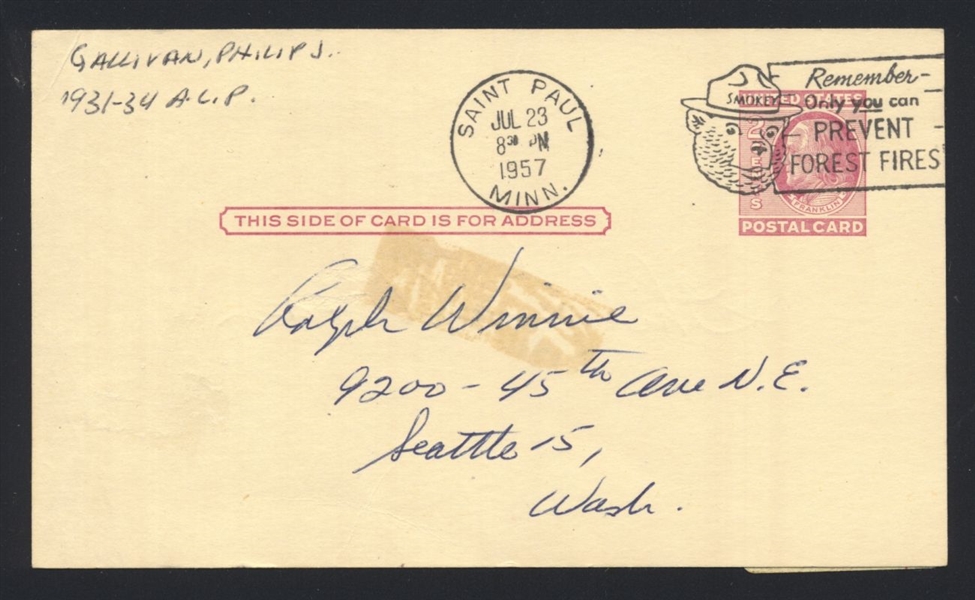 GALLIVAN, PHILIP J.
1931-34 A.L.P.
SAINT PAUL
JUL 23
8 30 PM
1957
MINN.
SMOKEY
Remember-
Only you can
PREVENT
FOREST FIRES
UNITED STATES
FRANKLIN
POSTAL CARD
THIS SIDE OF CARD IS FOR ADDRESS
Ralph Winnie
9200-45th Ave N.E.
Seattle 15,
Wash.